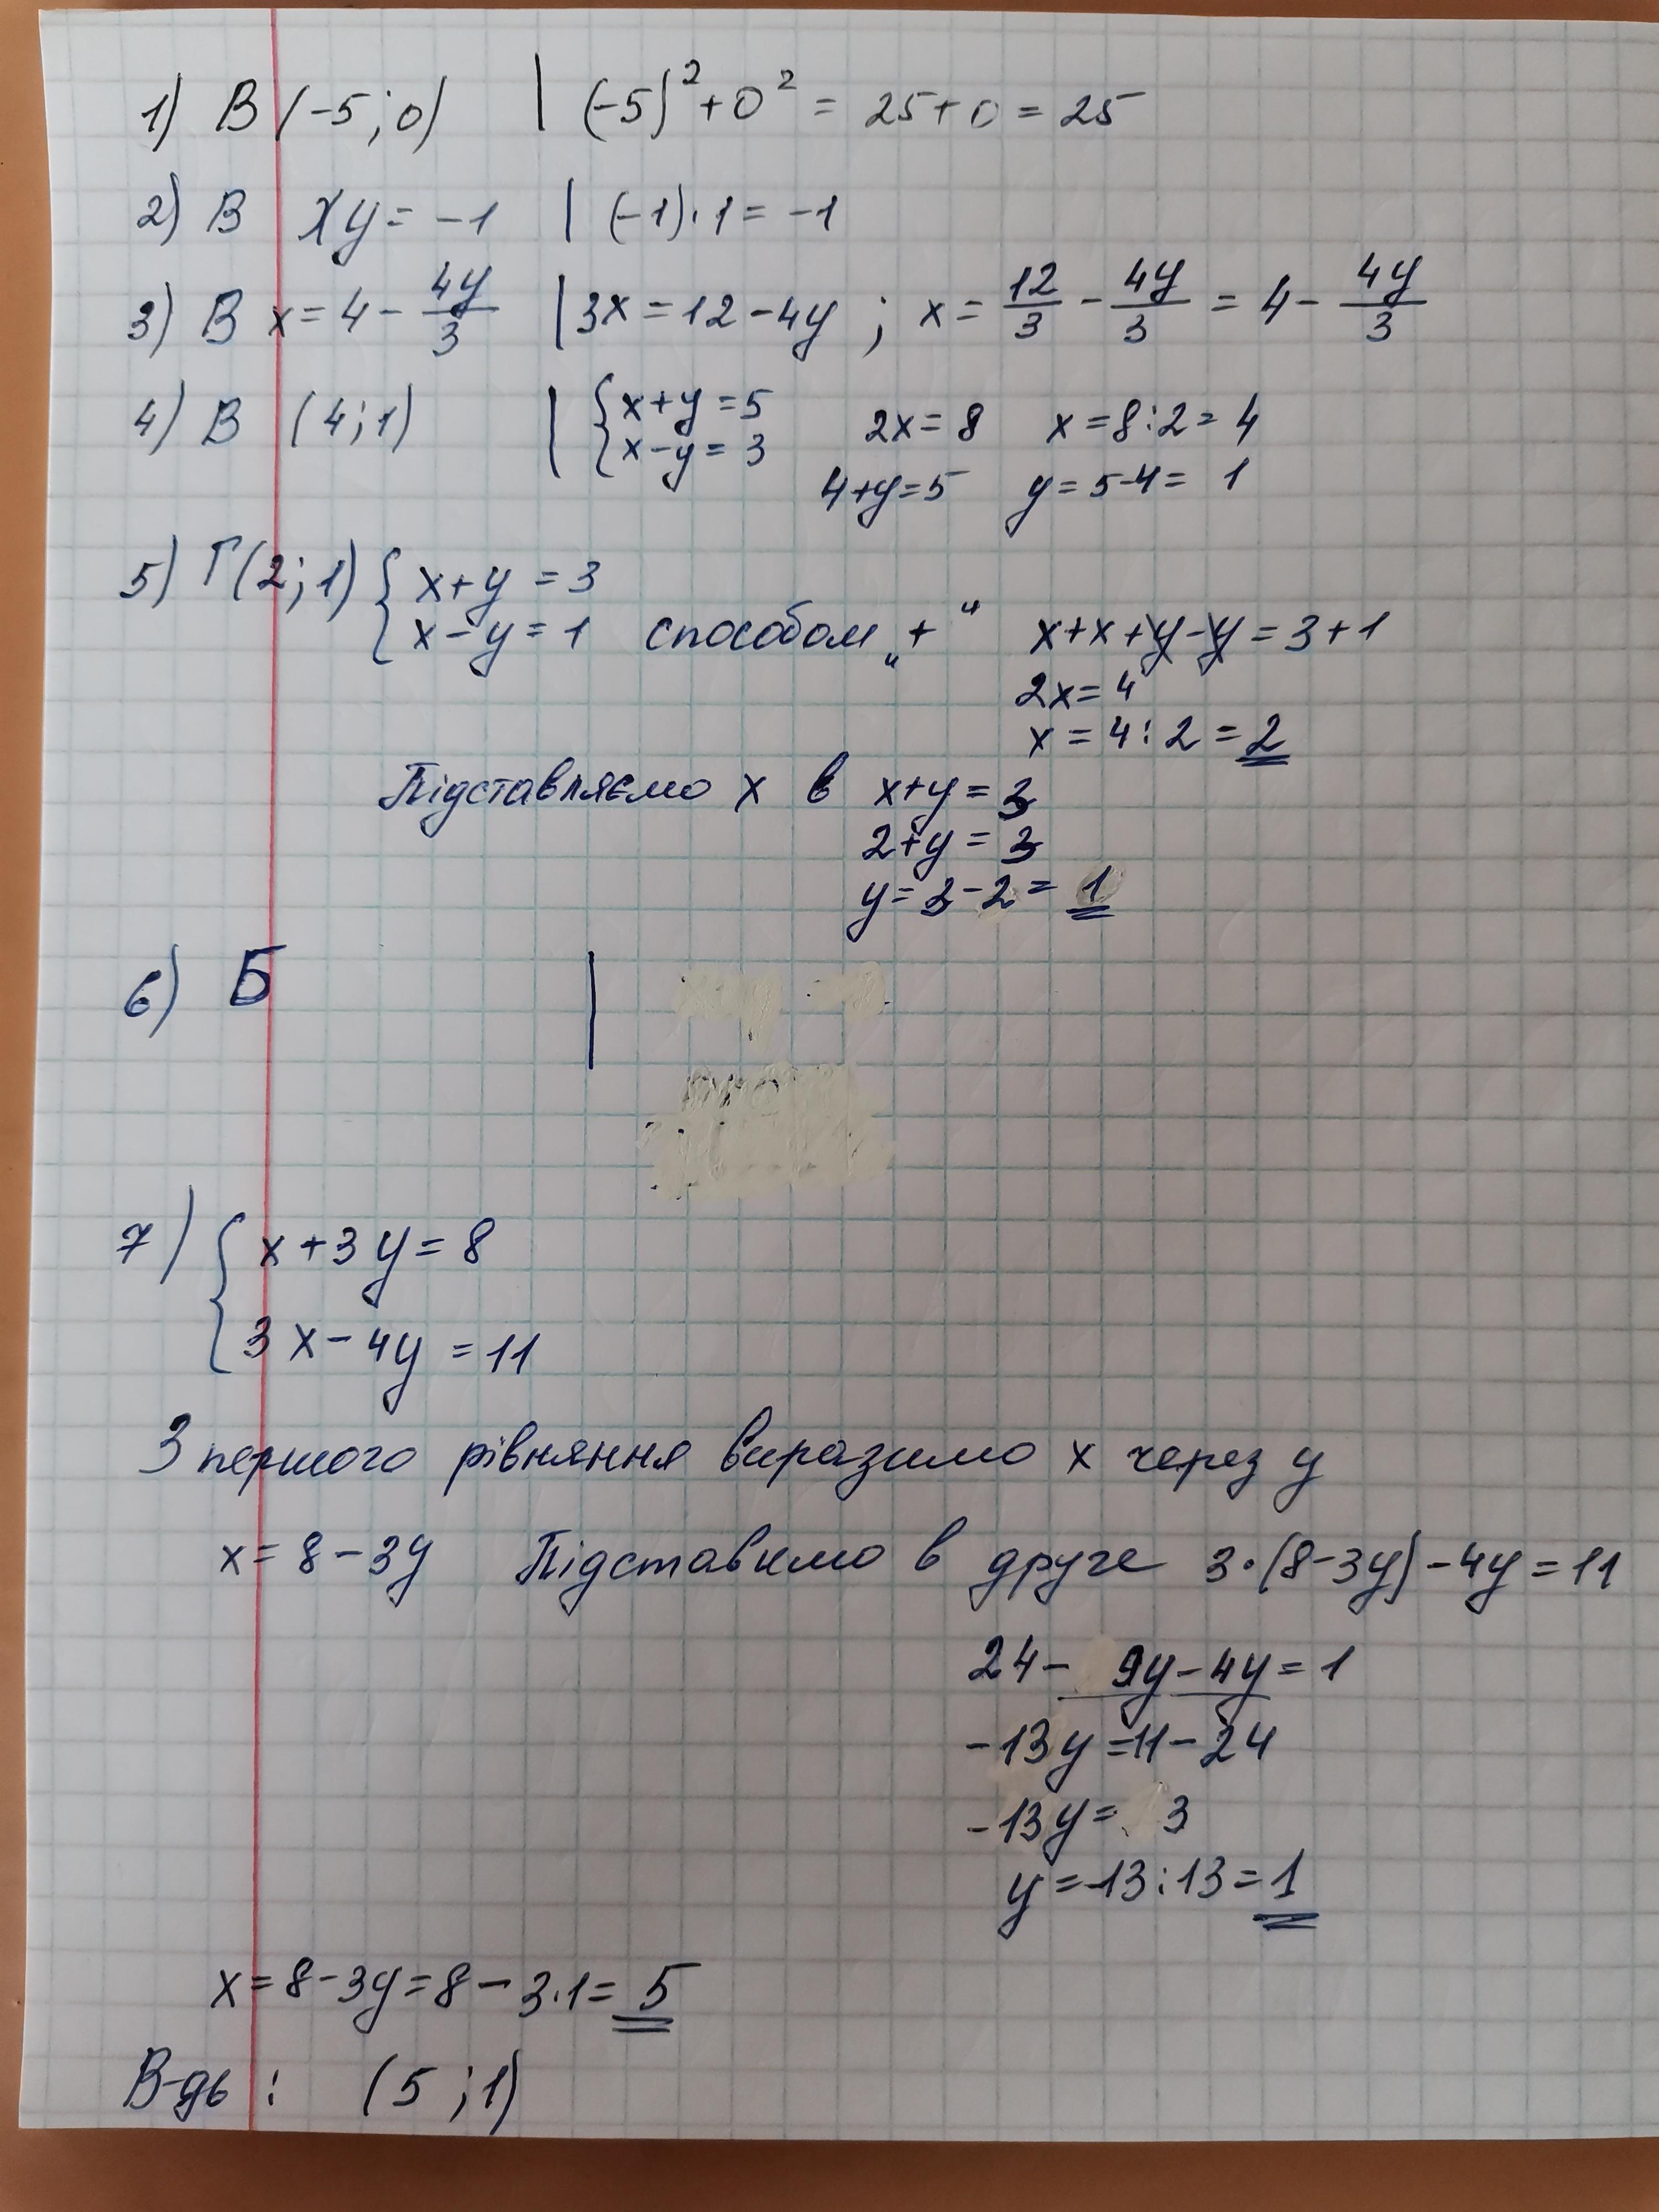 1) В (-5; 0) | (-5)² + 0² = 25 + 0 = 25
2) В xy = -1 | (-1)·1 = -1
3) В x = 4 - 4y/3 | 3x = 12 - 4y ; x = 12/3 - 4y/3 = 4 - 4y/3
4) В (4; 1) | { x + y = 5 2x = 8 x = 8 : 2 = 4
x - y = 3
4 + y = 5 y = 5 - 4 = 1
5) Г (2; 1) { x + y = 3
x - y = 1 способом „+“ x + x + y - y = 3 + 1
2x = 4
x = 4 : 2 = 2
Підставляємо x в x + y = 3
2 + y = 3
y = 3 - 2 = 1
6) Б |
7) { x + 3y = 8
3x - 4y = 11
З першого рівняння виразимо x через y
x = 8 - 3y Підставимо в друге 3·(8 - 3y) - 4y = 11
24 - 9y - 4y = 1
-13y = 11 - 24
-13y = 3
y = -13 : 13 = 1
x = 8 - 3y = 8 - 3·1 = 5
В-дь : (5 ; 1)